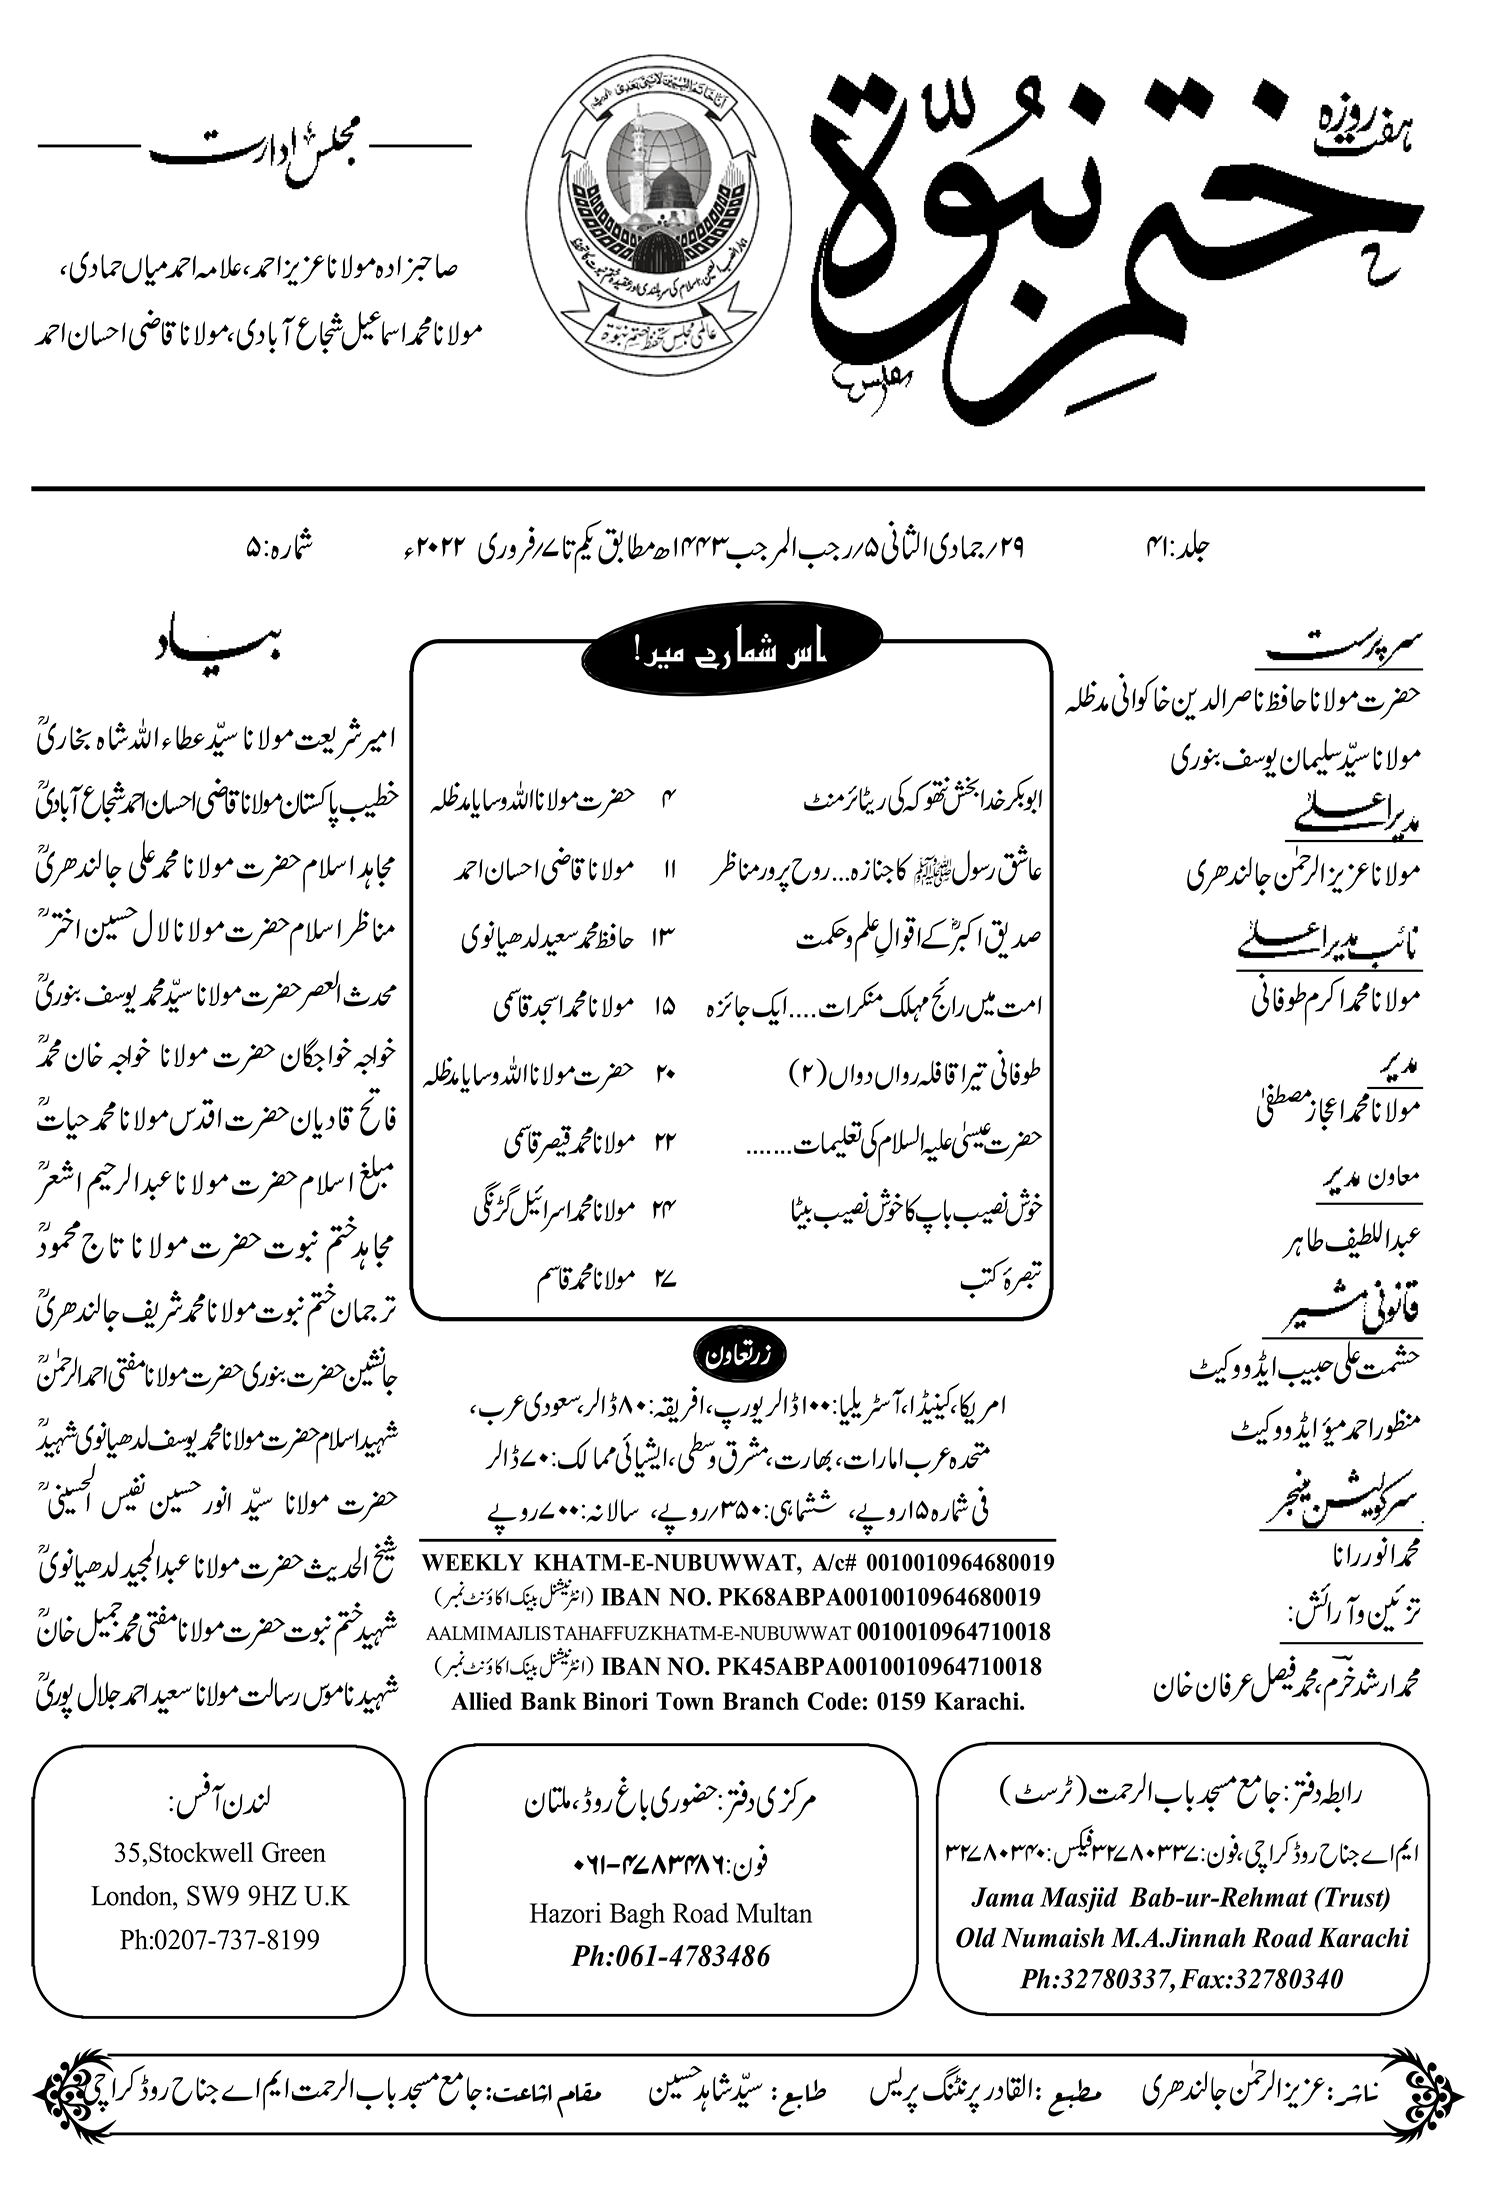 ہفت روزہ
ختم نبوّة
مجلس ادارت
صاحبزادہ مولانا عزیز احمد، علامہ احمد میاں حمادی،
مولانا محمد اسماعیل شجاع آبادی، مولانا قاضی احسان احمد
عالمی مجلس تحفظ ختم نبوّة
جلد: ۴۱
۲۹؍جمادی الثانی ۵؍رجب المرجب ۱۴۴۳ھ مطابق یکم تا ۷؍فروری ۲۰۲۲ء
شمارہ: ۵
سرپرست
حضرت مولانا حافظ ناصر الدین خاکوانی مدظلہ
مولانا سیّد سلیمان یوسف بنوری
مدیر اعلےٰ
مولانا عزیز الرحمٰن جالندھری
نائب مدیر اعلےٰ
مولانا محمد اکرم طوفانی
مدیر
مولانا محمد اعجاز مصطفیٰ
معاون مدیر
عبداللطیف طاہر
قانونی مشیر
حشمت علی حبیب ایڈووکیٹ
منظور احمد میؤ ایڈووکیٹ
سرکولیشن مینجر
محمد انور رانا
تزئین و آرائش:
محمد ارشد خرم، محمد فیصل عرفان خان
اس شمارے میں!
ابوبکر خدا بخش نتھوکہ کی ریٹائرمنٹ ۴ حضرت مولانا اللہ وسایا مدظلہ
عاشق رسول ﷺ کا جنازہ... روح پرور مناظر ۱۱ مولانا قاضی احسان احمد
صدیق اکبرؓ کے اقوالِ علم و حکمت ۱۳ حافظ محمد سعید لدھیانوی
امت میں رائج مہلک منکرات.... ایک جائزہ ۱۵ مولانا محمد اسجد قاسمی
طوفانی تیرا قافلہ رواں دواں (۲) ۲۰ حضرت مولانا اللہ وسایا مدظلہ
حضرت عیسیٰ علیہ السلام کی تعلیمات....... ۲۲ مولانا محمد قیصر قاسمی
خوش نصیب باپ کا خوش نصیب بیٹا ۲۴ مولانا محمد اسرائیل گڑنگی
تبصرۂ کتب ۲۷ مولانا محمد قاسم
زرتعاون
امریکا، کینیڈا، آسٹریلیا: ۱۰۰ ڈالر یورپ، افریقہ: ۸۰ ڈالر، سعودی عرب،
متحدہ عرب امارات، بھارت، مشرق وسطی، ایشیائی ممالک: ۷۰ ڈالر
فی شمارہ ۱۵ روپے، ششماہی: ۳۵۰؍روپے، سالانہ: ۷۰۰ روپے
WEEKLY KHATM-E-NUBUWWAT, A/c# 0010010964680019
IBAN NO. PK68ABPA0010010964680019 (انٹرنیشنل بینک اکاؤنٹ نمبر)
AALMIMAJLISTAHAFFUZKHATM-E-NUBUWWAT 0010010964710018
IBAN NO. PK45ABPA0010010964710018 (انٹرنیشنل بینک اکاؤنٹ نمبر)
Allied Bank Binori Town Branch Code: 0159 Karachi.
بیاد
امیر شریعت مولانا سیّد عطاء اللہ شاہ بخاریؒ
خطیب پاکستان مولانا قاضی احسان احمد شجاع آبادیؒ
مجاہد اسلام حضرت مولانا محمد علی جالندھریؒ
مناظر اسلام حضرت مولانا لال حسین اخترؒ
محدث العصر حضرت مولانا سیّد محمد یوسف بنوریؒ
خواجہ خواجگان حضرت مولانا خواجہ خان محمدؒ
فاتح قادیان حضرت اقدس مولانا محمد حیاتؒ
مبلغ اسلام حضرت مولانا عبدالرحیم اشعرؒ
مجاہد ختم نبوت حضرت مولانا تاج محمودؒ
ترجمان ختم نبوت مولانا محمد شریف جالندھریؒ
جانشین حضرت بنوری حضرت مولانا مفتی احمد الرحمٰنؒ
شہید اسلام حضرت مولانا محمد یوسف لدھیانوی شہیدؒ
حضرت مولانا سیّد انور حسین نفیس الحسینیؒ
شیخ الحدیث حضرت مولانا عبدالمجید لدھیانویؒ
شہید ختم نبوت حضرت مولانا مفتی محمد جمیل خانؒ
شہید ناموس رسالت مولانا سعید احمد جلال پوریؒ
رابطہ دفتر: جامع مسجد باب الرحمت (ٹرسٹ)
ایم اے جناح روڈ کراچی، فون: ۳۲۷۸۰۳۳۷ فیکس: ۳۲۷۸۰۳۴۰
Jama Masjid Bab-ur-Rehmat (Trust)
Old Numaish M.A.Jinnah Road Karachi
Ph:32780337, Fax:32780340
مرکزی دفتر: حضوری باغ روڈ، ملتان
فون: ۰۶۱-۴۷۸۳۴۸۶
Hazori Bagh Road Multan
Ph:061-4783486
لندن آفس:
35,Stockwell Green
London, SW9 9HZ U.K
Ph:0207-737-8199
ناشر: عزیز الرحمٰن جالندھری مطبع: القادر پرنٹنگ پریس طابع: سیّد شاہد حسین مقام اشاعت: جامع مسجد باب الرحمت ایم اے جناح روڈ کراچی